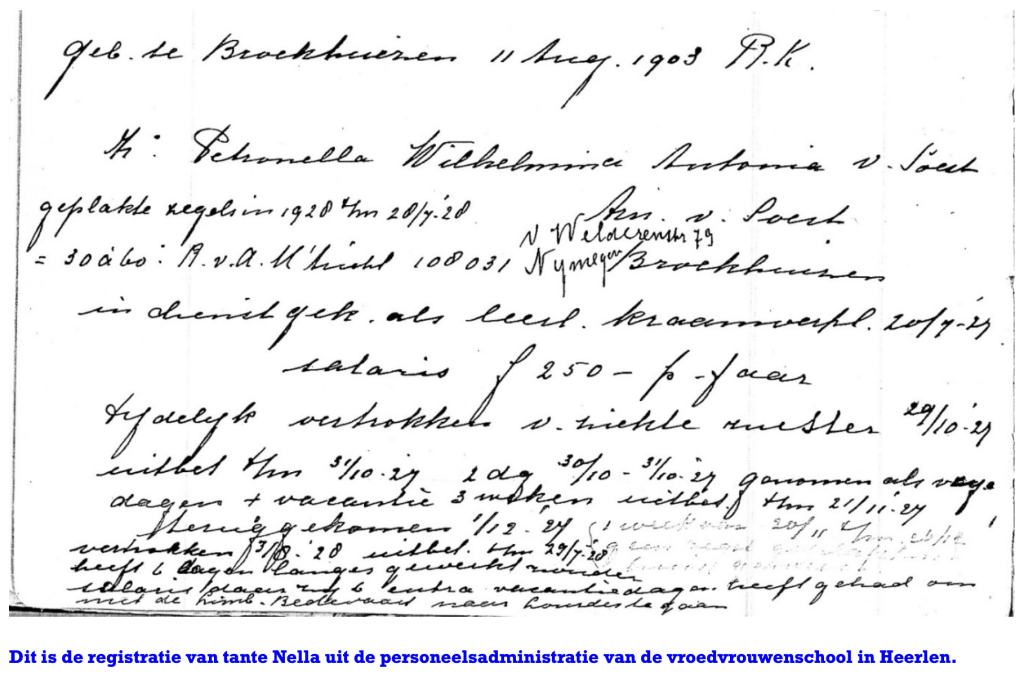 geb. te Broekhuizen 11 Aug. 1903 R.K.
Zr: Petronella Wilhelmina Antonia v. Soest
geplakte zegels in 1928 t/m 28/7.'28
An. v. Soest
v Welderenstr 79
= 30 à 60: R.v.A. M'tricht 108031
Nymegen
Broekhuizen
in dienst gek. als leerl. kraamverpl. 20/7-27
salaris f 250 - p. Jaar
tydelyk vertrokken v. ziekte zuster 29/10-27
uitbet t/m 31/10-27 2 dg 30/10 - 31/10-27 genomen als vrye
dagen + vacantie 3 weken uitbet. t/m 21/11-27
teruggekomen 1/12-'27 (1 week van 20/11 t/m
vertrokken 31/8-'28 uitbet. t/m 29/7-28
heeft 6 dagen langer gewerkt zonder
salaris daar zy 6 extra vacantiedagen heeft gehad om
met de Limb. Bedevaart naar Lourdes te gaan
Dit is de registratie van tante Nella uit de personeelsadministratie van de vroedvrouwenschool in Heerlen.